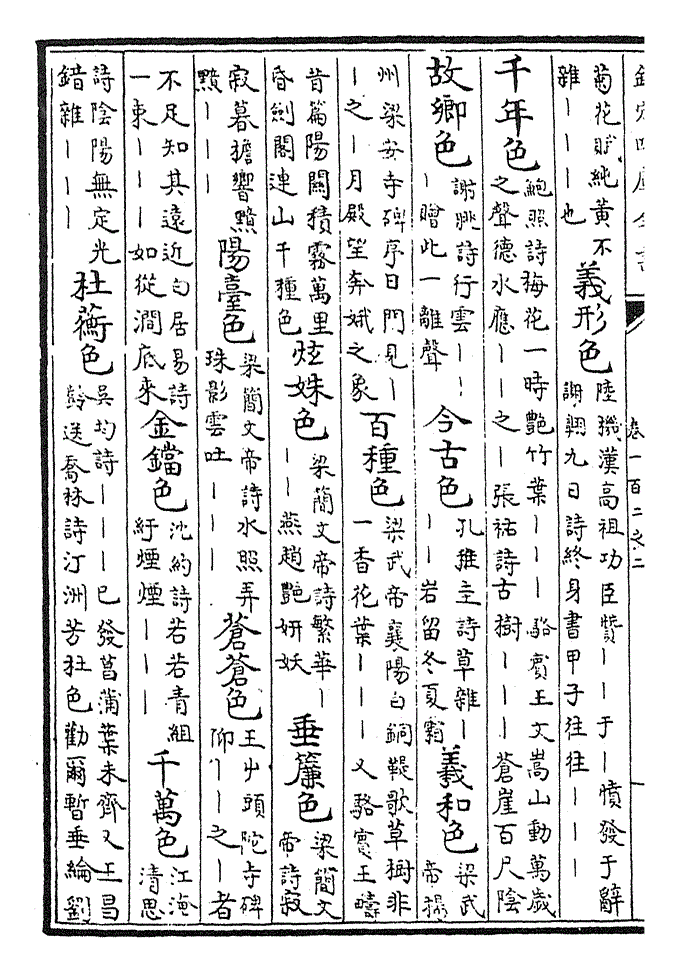 欽定四庫全書
卷一百二之二
菊花賦純黃不
雜丨丨丨也
義形色
陸機漢高祖功臣贊丨丨于丨憤發于辭
謝翱九日詩終身書甲子往往丨丨丨
千年色
鮑照詩梅花一時艷竹葉丨丨丨駱賓王文嵩山動萬歲
之聲德水應丨丨之丨張祐詩古樹丨丨丨蒼崖百尺陰
故鄉色
謝朓詩行雲丨丨
丨贈此一離聲
今古色
孔推主詩草雜丨
丨丨岩留冬夏霜
羲和色
梁武
帝撰
州梁安寺碑序日門見丨
丨之丨月殿望奔娥之象
百種色
梁武帝襄陽白銅鞮歌草樹非
一香花葉丨丨丨又駱賓王疇
昔篇陽關積霧萬里
昏劍閣連山千種色
炫姝色
梁簡文帝詩繁華丨
丨丨燕趙艷妍妖
垂簾色
梁簡文
帝詩寂
寂暮簷響黯
黯丨丨丨
陽臺色
梁簡文帝詩水照弄
珠影雲吐丨丨丨
蒼蒼色
王屮頭陀寺碑
仰丨丨之丨者
不足知其遠近白居易詩
一束丨丨丨如從澗底來
金鐺色
沈約詩若若青組
紆煙煙丨丨丨
千萬色
江淹
清思
詩陰陽無定光
錯雜丨丨丨
杜蘅色
吳均詩丨丨丨巳發菖蒲葉未齊又王昌
齡送喬林詩汀洲芳杜色勸爾暫垂綸劉